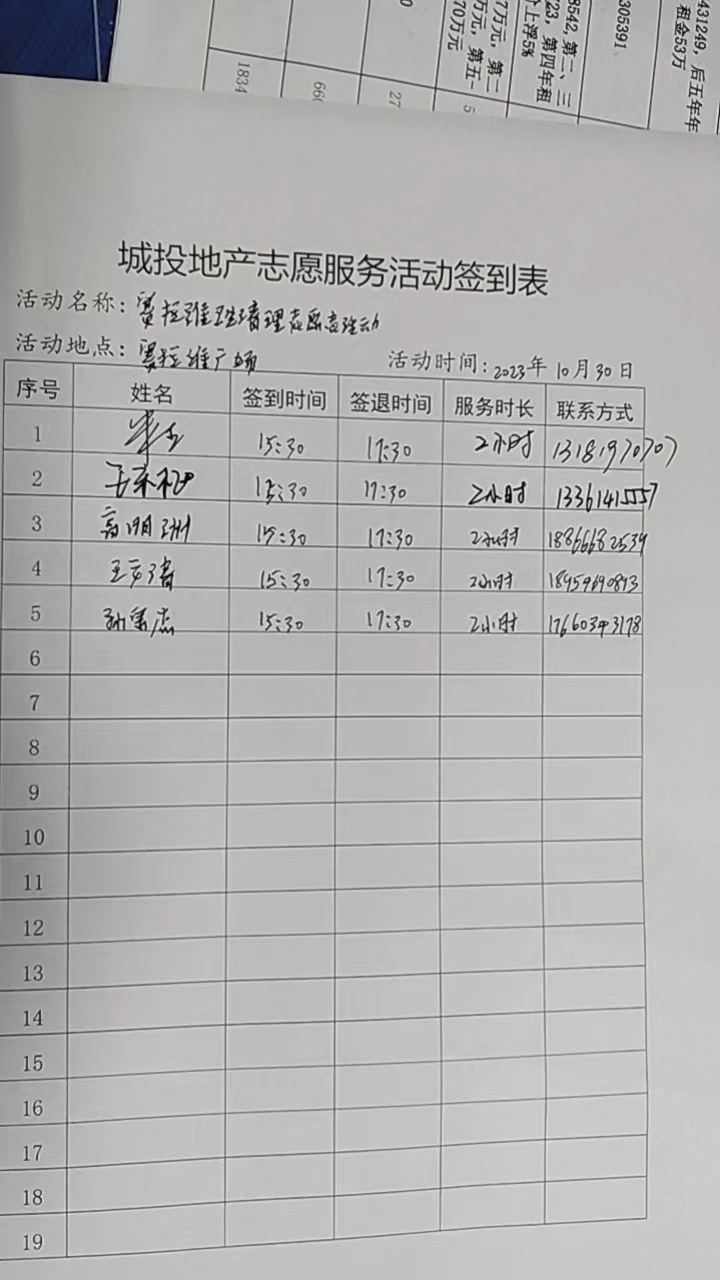 431249, 后五年年
租金53万
305391
8542, 第二、三
23, 第四年租
上浮5%
7万元, 第二
万元, 第五
70万元
0
27
5
666
1834
城投地产志愿服务活动签到表
活动名称: 赛拉维 清理志愿 活动
活动地点: 赛拉维广场 活动时间: 2023年 10月30日
序号 姓名 签到时间 签退时间 服务时长 联系方式
1 15:30 17:30 2小时 13181970707
2 15:30 17:30 2小时 13361415557
3 高明洲 15:30 17:30 2小时 18866682539
4 15:30 17:30 2小时
5 15:30 17:30 2小时 17660393178
6
7
8
9
10
11
12
13
14
15
16
17
18
19